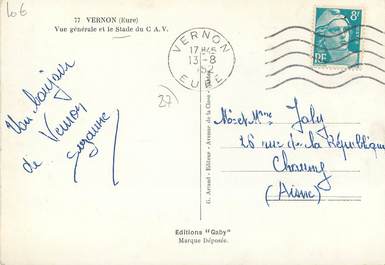 106
77 VERNON (Eure)
Vue générale et le Stade du C.A.V.
VERNON
17H45
13-8
EURE
8F
RF
27)
Un bonjour
de Vernon
Suzanne
G. Artaud - Editeur - Avenue de la Close -
Mr et Mme Joly
26 rue de la République
Chauny
(Aisne)
Editions "Gaby"
Marque Déposée.